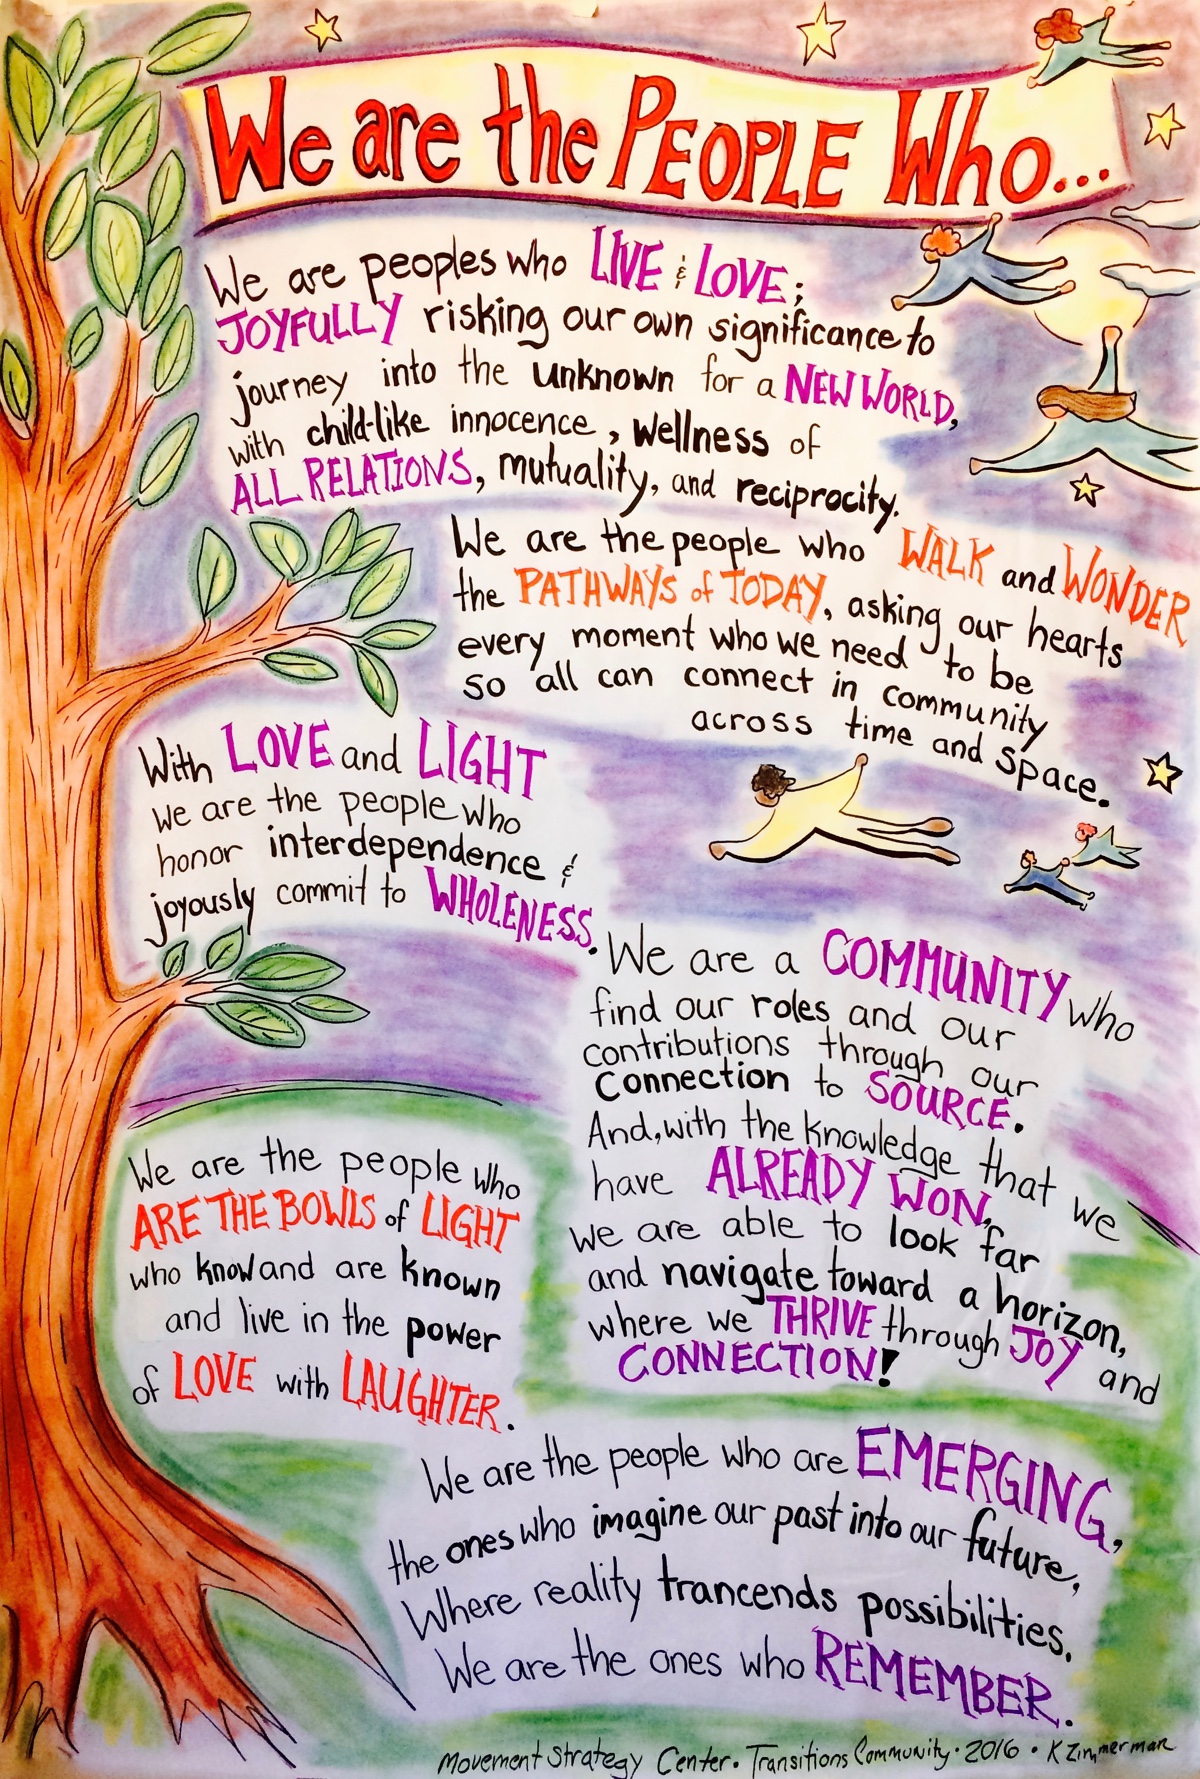 We are the PEOPLE Who...
We are peoples who LIVE & LOVE;
JOYFULLY risking our own significance to
journey into the unknown for a NEW WORLD,
with child-like innocence, wellness of
ALL RELATIONS, mutuality, and reciprocity.
We are the people who WALK and WONDER
the PATHWAYS of TODAY, asking our hearts
every moment who we need to be
so all can connect in community
across time and space.
With LOVE and LIGHT
we are the people who
honor interdependence &
joyously commit to WHOLENESS.
We are a COMMUNITY who
find our roles and our
contributions through our
connection to SOURCE.
And, with the knowledge that we
have ALREADY WON,
we are able to look far
and navigate toward a horizon,
where we THRIVE through JOY and
CONNECTION!
We are the people who
ARE THE BOWLS of LIGHT
who know and are known
and live in the power
of LOVE with LAUGHTER.
We are the people who are EMERGING,
the ones who imagine our past into our future,
Where reality trancends possibilities.
We are the ones who REMEMBER.
Movement Strategy Center • Transitions Community • 2016 • K Zimmerman